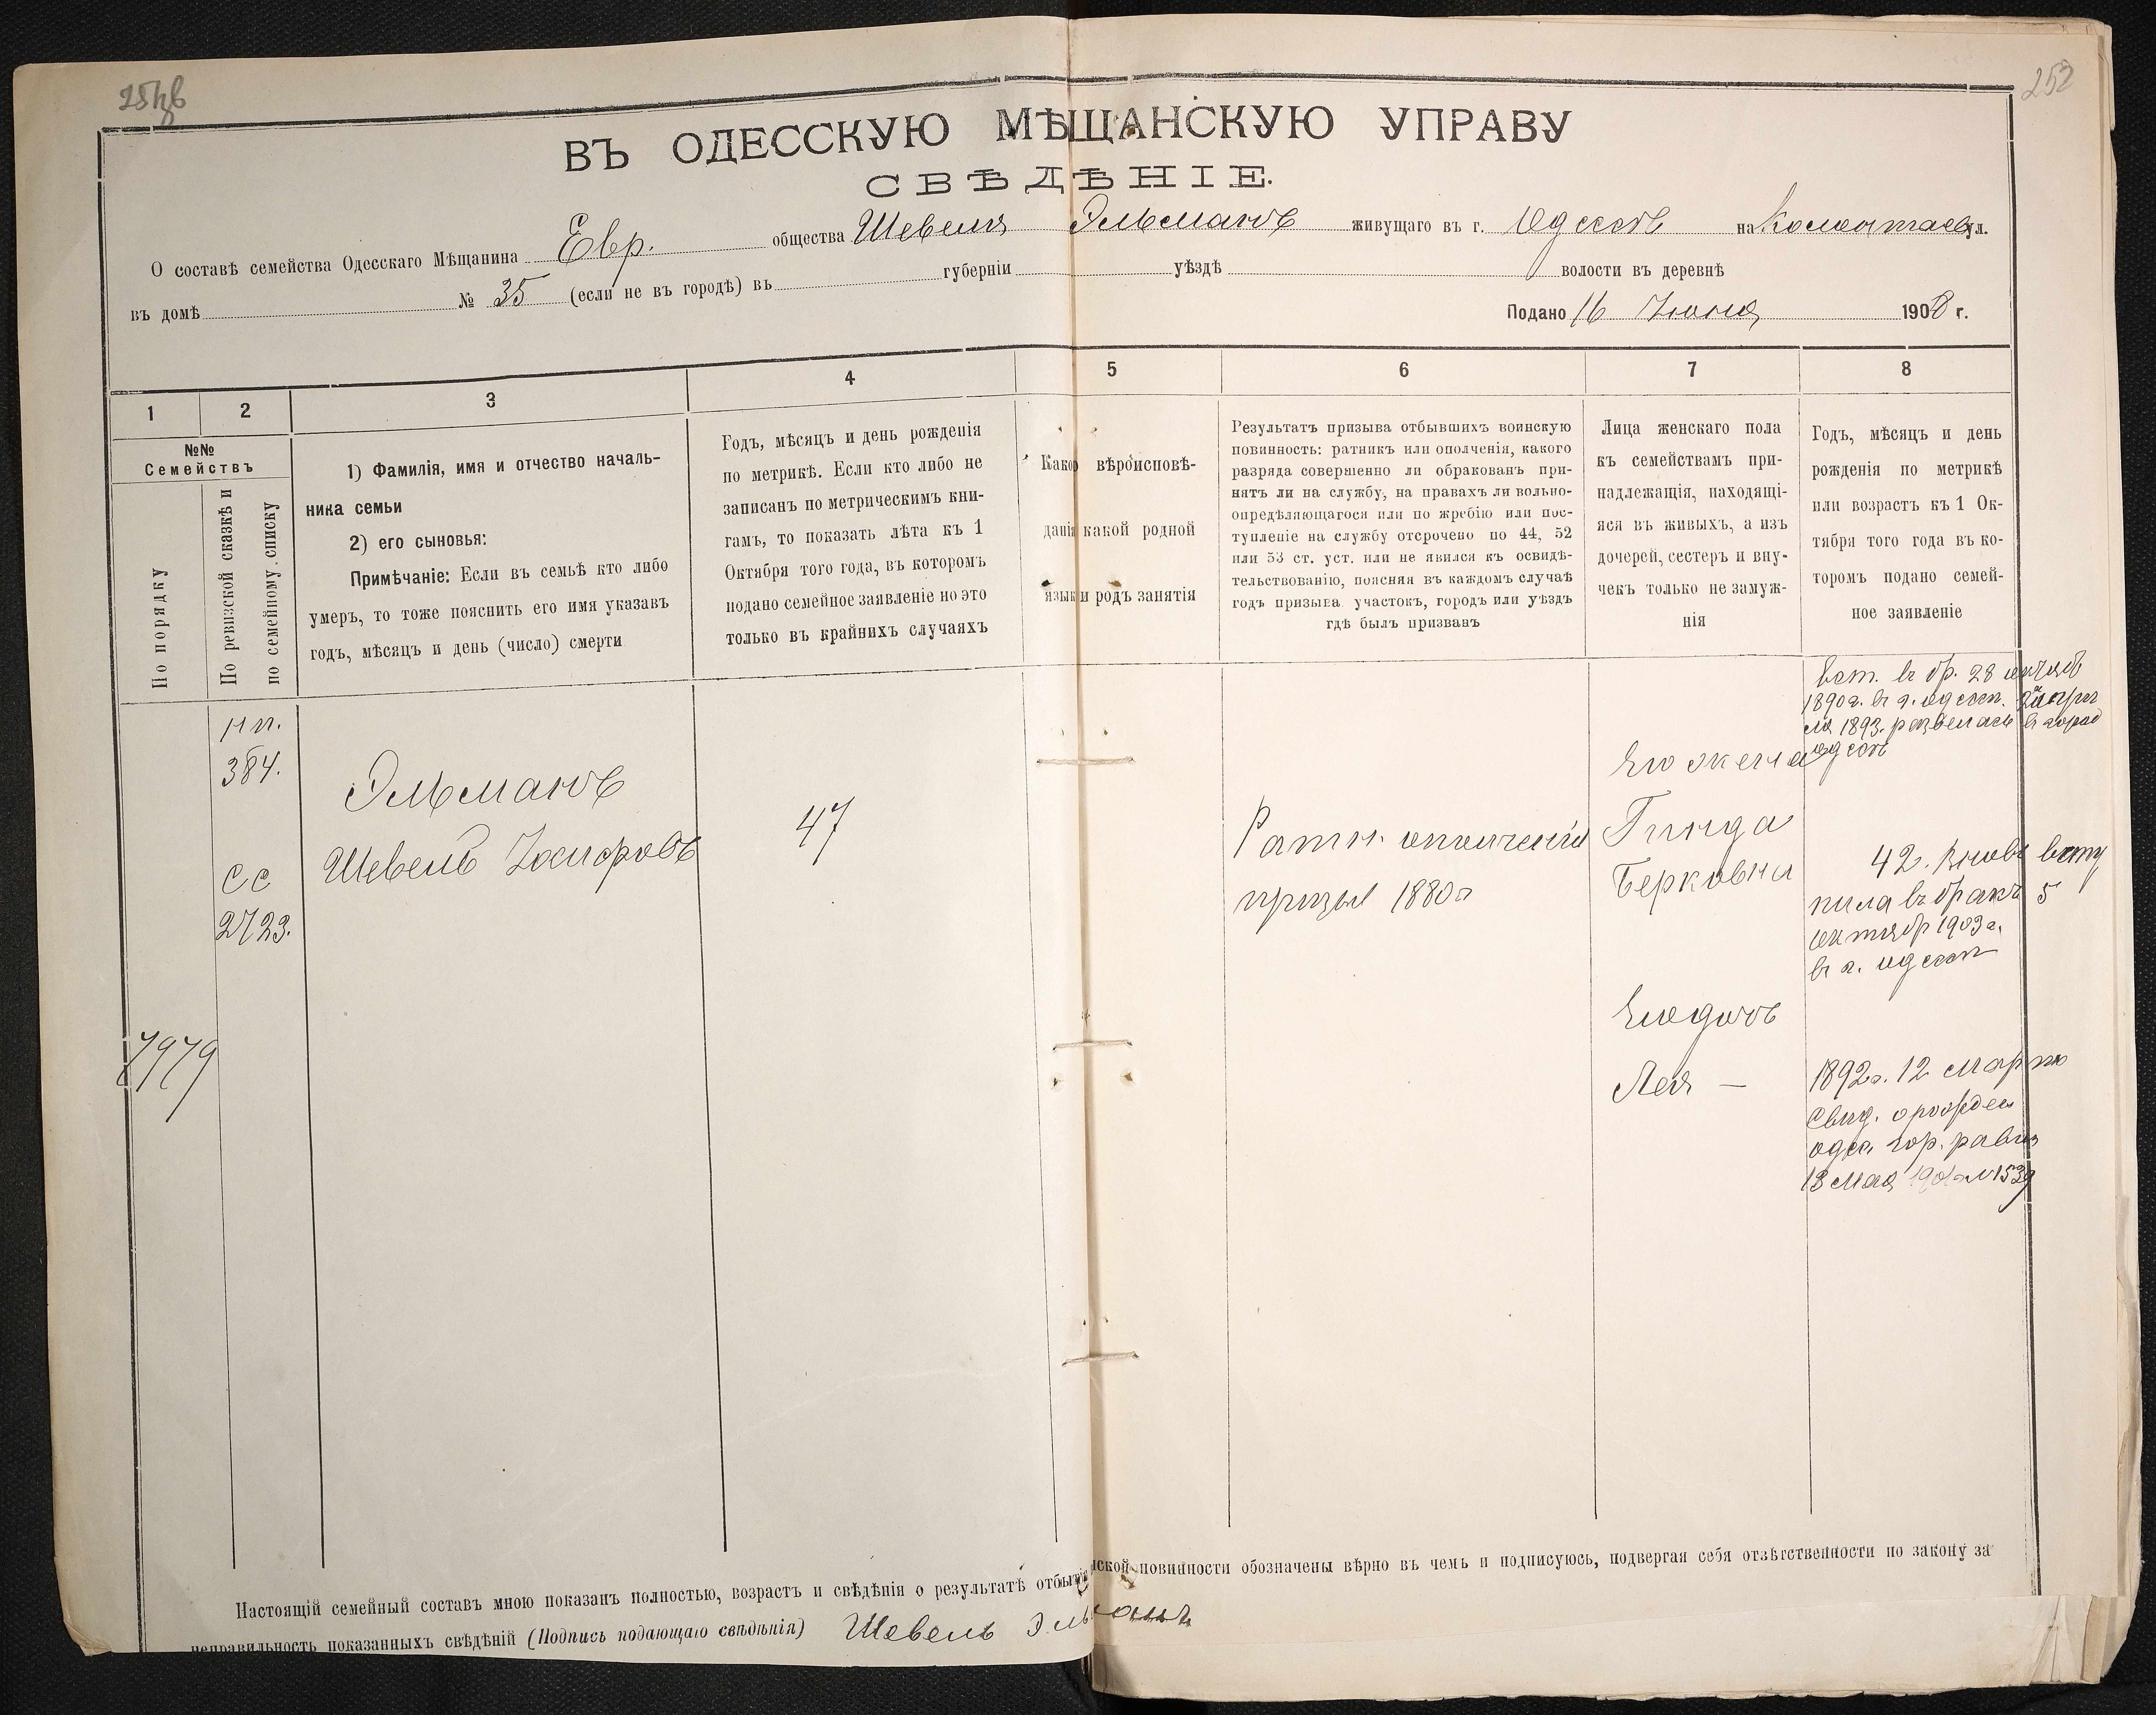 252
ВЪ ОДЕССКУЮ МѢЩАНСКУЮ УПРАВУ
СВѢДѢНІЕ.
О составѣ семейства Одесскаго Мѣщанина Евр. общества Шевеля Эльманъ живущаго въ г. Одессѣ на ул.
въ домѣ № 35 (если не въ городѣ) въ губерніи уѣздѣ волости въ деревнѣ
Подано 16 Іюня 1908 г.
1 2 3 4 5 6 7 8
№№
Семействъ
По порядку
По ревизской сказкѣ и
по семейному списку
1) Фамилія, имя и отчество началь-
ника семьи
2) его сыновья:
Примѣчаніе: Если въ семьѣ кто либо
умеръ, то тоже пояснить его имя указавъ
годъ, мѣсяцъ и день (число) смерти
Годъ, мѣсяцъ и день рожденія
по метрикѣ. Если кто либо не
записанъ по метрическимъ кни-
гамъ, то показать лѣта къ 1
Октября того года, въ которомъ
подано семейное заявленіе но это
только въ крайнихъ случаяхъ
Какого вѣроисповѣ-
данія какой родной
языкъ и родъ занятія
Результатъ призыва отбывшихъ воинскую
повинность: ратникъ или ополченія, какого
разряда совершенно ли обракованъ при-
нятъ ли на службу, на правахъ ли вольно-
опредѣляющагося или по жребію или пос-
тупленіе на службу отсрочено по 44, 52
или 53 ст. уст. или не явился къ освидѣ-
тельствованію, поясняя въ каждомъ случаѣ
годъ призыва участокъ, городъ или уѣздъ
гдѣ былъ призванъ
Лица женскаго пола
къ семействамъ при-
надлежащія, находящі-
яся въ живыхъ, а изъ
дочерей, сестеръ и вну-
чекъ только не замуж-
нія
Годъ, мѣсяцъ и день
рожденія по метрикѣ
или возрастъ къ 1 Ок-
тября того года въ ко-
торомъ подано семей-
ное заявленіе
384.
СС
2723.
7979
Эльманъ
Шевель
47
Ратн. ополченія
призыв 1880 г
Его жена
Гинда
Берковна
Его дочь
Лея —
вст. въ бр. 28
1890 г. въ г. Одесс.
1893. развелась
42. Вновь всту
пила въ бракъ 5
октябр 1903 г.
въ г. Одессѣ
1892 г. 12 марта
Свид. о рожден
одес. гор. раввин
13 Мая № 1539
Настоящій семейный составъ мною показанъ полностью, возрастъ и свѣдѣнія о результатѣ отбытія нской повинности обозначены вѣрно въ чемъ и подписуюсь, подвергая себя отвѣтственности по закону за
неправильность показанныхъ свѣдѣній (Подпись подающаго свѣдѣнія) Шевель Эльманъ